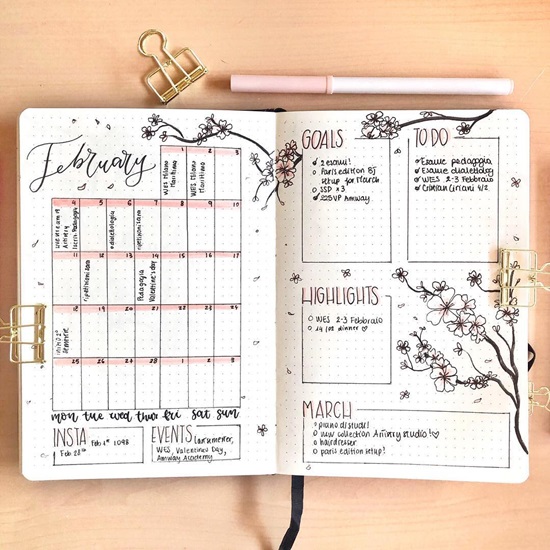 February
1 2 3
WES Milano
Marittima
WES Milano
Marittima
4 5 6 7 8 9 10
Amintry
dialettologia
ripetizioni zara
11 12 13 14 15 16 17
ripetizioni
Pedagogia
Valentine's day
18 19 20 21 22 23 24
inizio 2°
semestre
25 26 27 28 1 2 3
mon tue wed thu fri sat sun
INSTA
Feb 1st 1098
Feb 28th
EVENTS
WES, Valentine's Day,
Amway Academy
GOALS
2 esami!
Paris edition BJ
setup for March
SSD x3
225VP Amway
TO DO
Esame pedagogia
Esame dialettology
WES 2-3 Febbraio
Cristian Cirani 4/2
HIGHLIGHTS
WES 2-3 Febbraio
14 feb dinner ♡
MARCH
piano di studi!
new collection Amintry studio! ♡
hairdresser
paris edition setup!